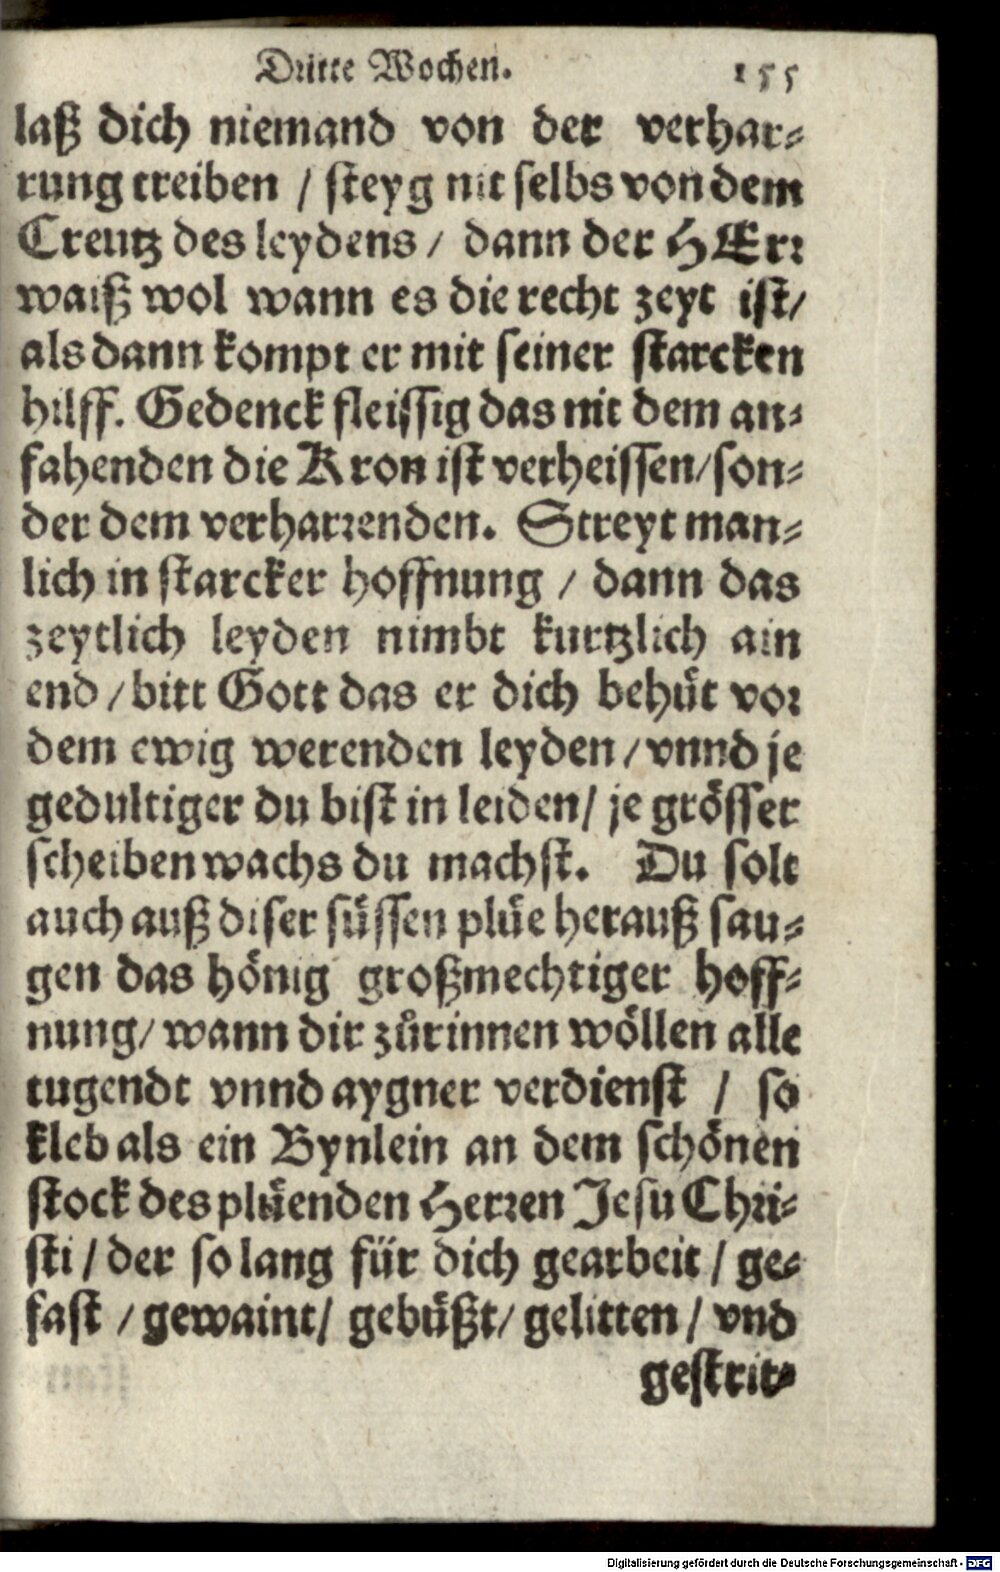 Dritte Wochen. 155
laß dich niemand von der verhar-
rung treiben / steyg nit selbs von dem
Creutz des leydens / dann der HErr
waiß wol wann es die recht zeyt ist /
als dann kompt er mit seiner starcken
hilff. Gedenck fleissig das nit dem an-
fahenden die Kron ist verheissen / son-
der dem verharrenden. Streyt man-
lich in starcker hoffnung / dann das
zeytlich leyden nimbt kurtzlich ain
end / bitt Gott das er dich behüt vor
dem ewig werenden leyden / vnnd je
gedultiger du bist in leiden / je grösser
scheiben wachs du machst. Du solt
auch auß diser süssen plüe herauß sau-
gen das hönig großmechtiger hoff-
nung / wann dir zůrinnen wöllen alle
tugendt vnnd aygner verdienst / so
kleb als ein Bynlein an dem schönen
stock des plüenden Herren Jesu Chri-
sti / der so lang für dich gearbeit / ge-
fast / gewaint / gebüßt / gelitten / vnd
gestrit-
Digitalisierung gefördert durch die Deutsche Forschungsgemeinschaft - DFG